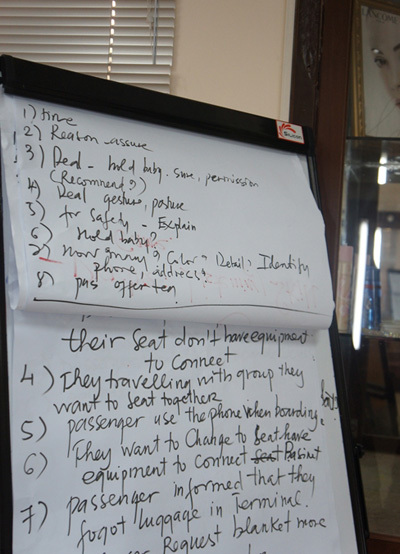 LANCOME
1) time
2) Reason - assure
3) Deal - hold baby. sure, permission
(Recommend?)
4) Deal gesture, posture
5) for safety - Explain
6) hold baby?
7) How many? Color? Detail, Identify
phone, address
8) offer tea
their seat don't have equipment
to connect
4) They travelling with group they
want to seat together
5) passenger use the phone when boarding
6) They want to change to seat have
equipment to connect
7) passenger informed that they
fogot luggage in Terminal.
Request blanket more